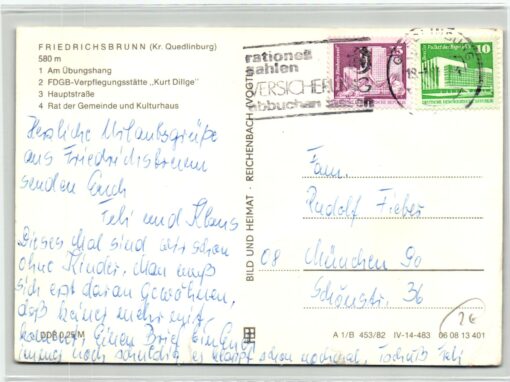 FRIEDRICHSBRUNN (Kr. Quedlinburg)
580 m
1 Am Übungshang
2 FDGB-Verpflegungsstätte „Kurt Dillge"
3 Hauptstraße
4 Rat der Gemeinde und Kulturhaus
Herzliche Urlaubsgrüße
aus Friedrichsbrunn
senden Euch
und Klaus
Dieses Mal sind wir schon
ohne Kinder. Man muß
sich erst daran gewöhnen,
daß keiner mehr mit-
kommt. Einen Brief bin Euch
immer noch schuldig es klappt schon nochmal.
DDR 0,25 M
BILD UND HEIMAT · REICHENBACH (VOGTL)
rationell
zahlen
VERSICHERUNG
abbuchen lassen
15
10
DEUTSCHE DEMOKRATISCHE REPUBLIK
Fam.
Rudolf Fieber
08 München 90
Schönstr. 36
2€
A 1/B 453/82 IV-14-483 06 08 13 401